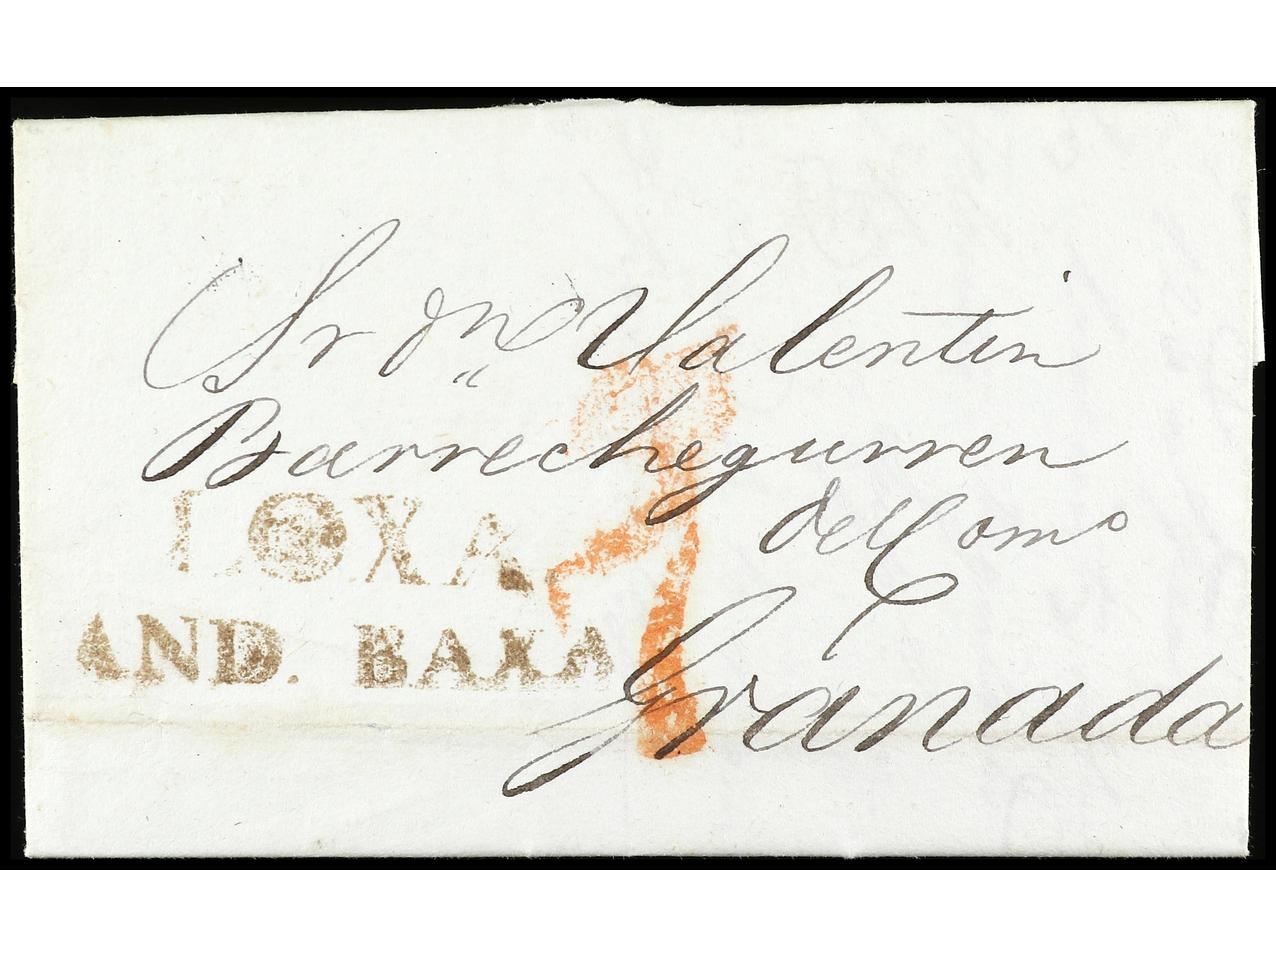 Sr Dn Valentin
Barrechegurren
del Como
LOXA
AND. BAXA
Granada